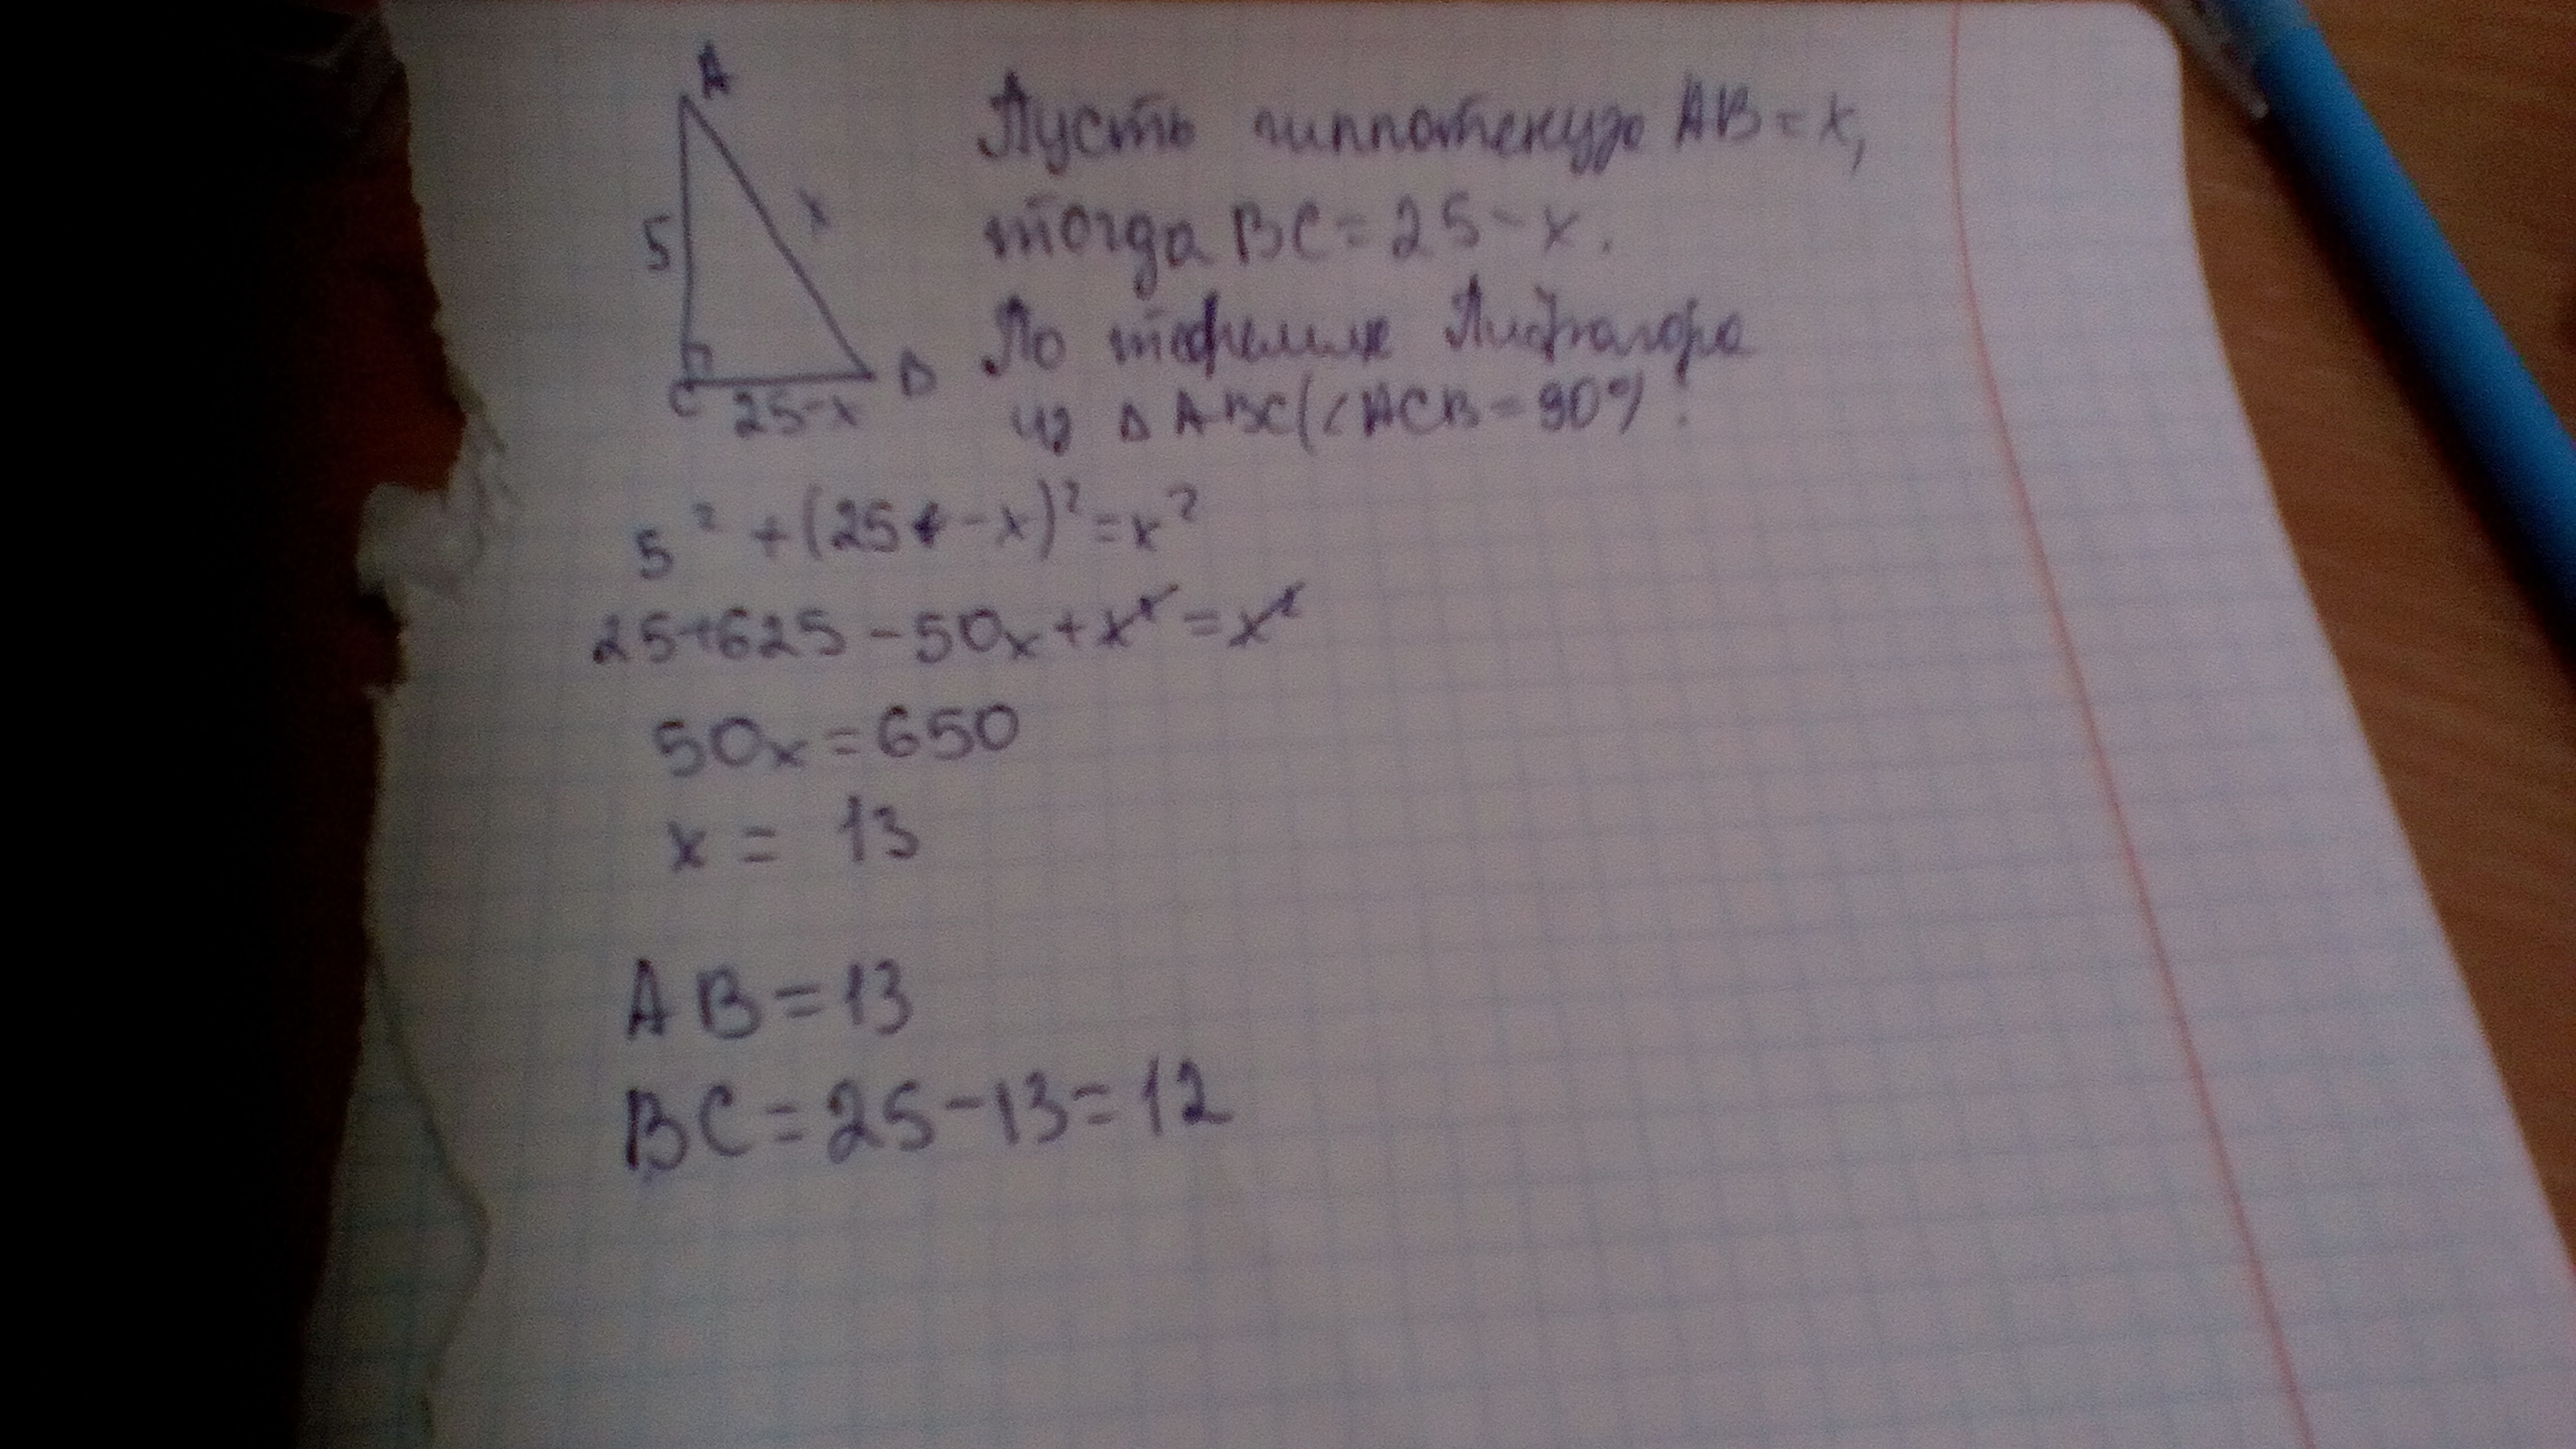 A
5
x
C
25-x
B
Пусть гиппотенузо AB = x,
тогда BC = 25 - x.
По теореме Пифагора
из Δ ABC (∠ ACB = 90°) :
5² + (25 - x)² = x²
25+625 - 50x + x² = x²
50x = 650
x = 13
AB = 13
BC = 25 - 13 = 12